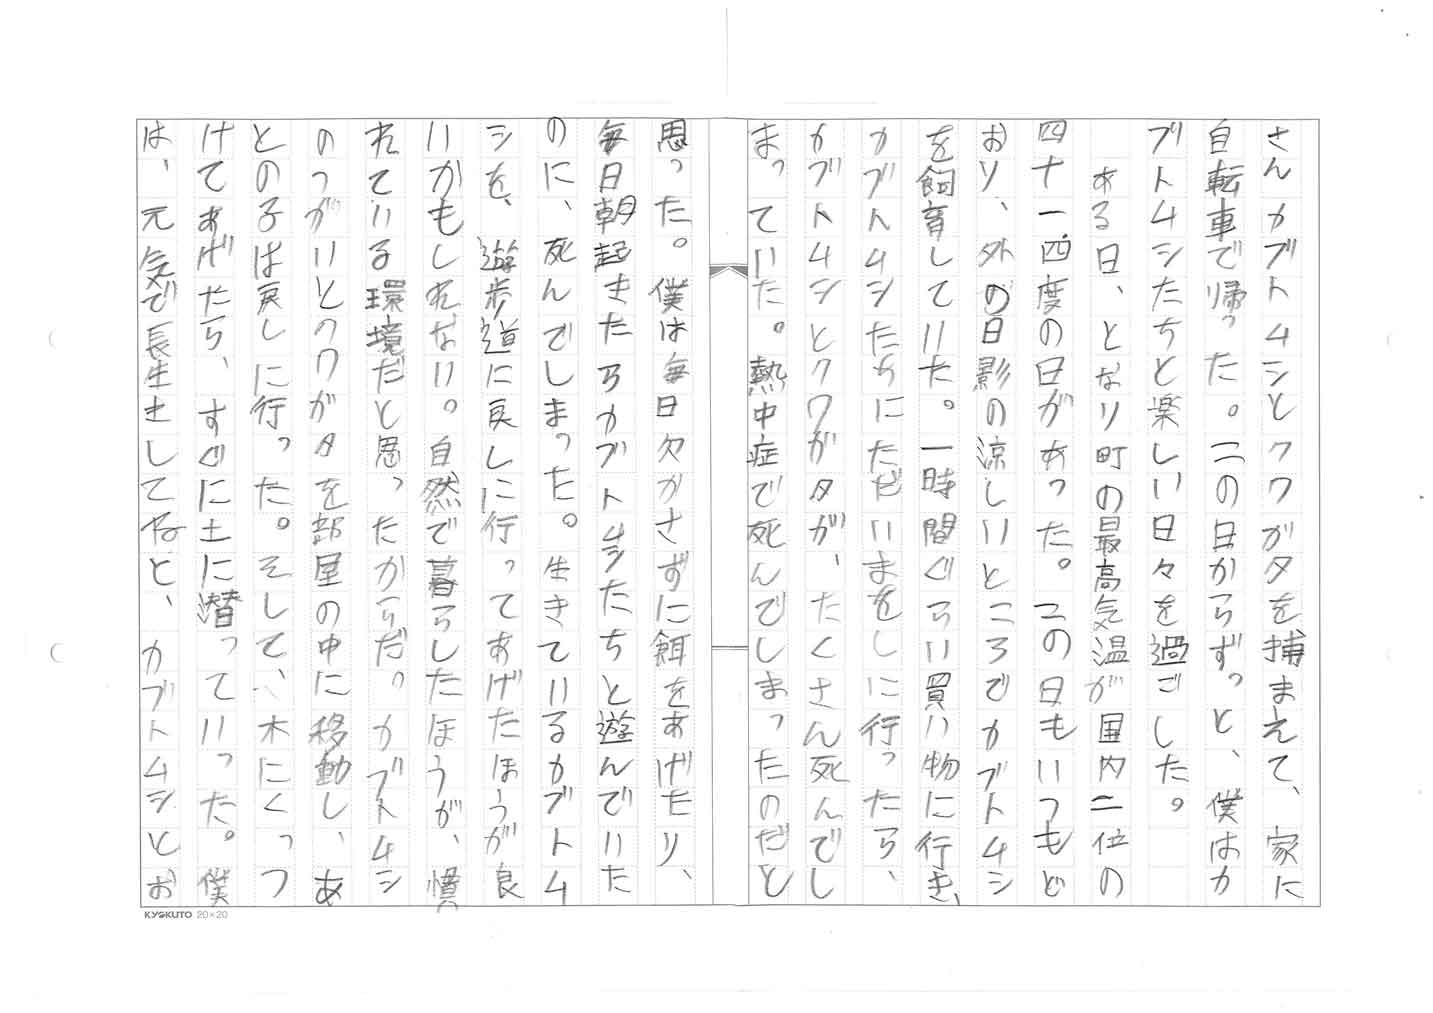 さんカブトムシとクワガタを捕まえて、家に
自転車で帰った。この日からずっと、僕はカ
ブトムシたちと楽しい日々を過ごした。
ある日、となり町の最高気温が国内二位の
四十一.四度の日があった。この日もいつもど
おり、外の日影の涼しいところでカブトムシ
を飼育していた。一時間ぐらい買い物に行き、
カブトムシたちにただいまをしに行ったら、
カブトムシとクワガタが、たくさん死んでし
まっていた。熱中症で死んでしまったのだと
思った。僕は毎日欠かさずに餌をあげたり、
毎日朝起きたらカブトムシたちと遊んでいた
のに、死んでしまった。生きているカブトム
シを、遊歩道に戻しに行ってあげたほうが良
いかもしれない。自然で暮らしたほうが、慣
れている環境だと思ったからだ。カブトムシ
のつがいとクワガタを部屋の中に移動し、あ
との子は戻しに行った。そして、木にくっつ
けてあげたら、すぐに土に潜っていった。僕
は、元気で長生きしてねと、カブトムシとお
KYOKUTO 20×20